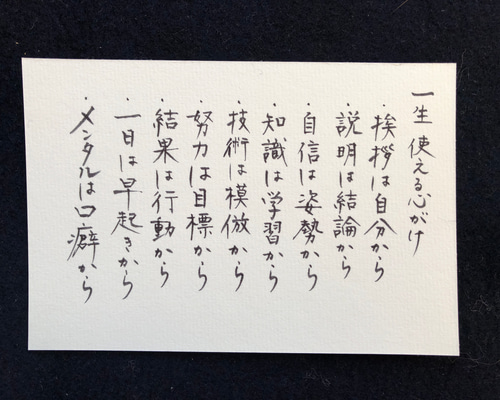 一生使える心がけ
・挨拶は自分から
・説明は結論から
・自信は姿勢から
・知識は学習から
・技術は模倣から
・努力は目標から
・結果は行動から
・一日は早起きから
・メンタルは口癖から